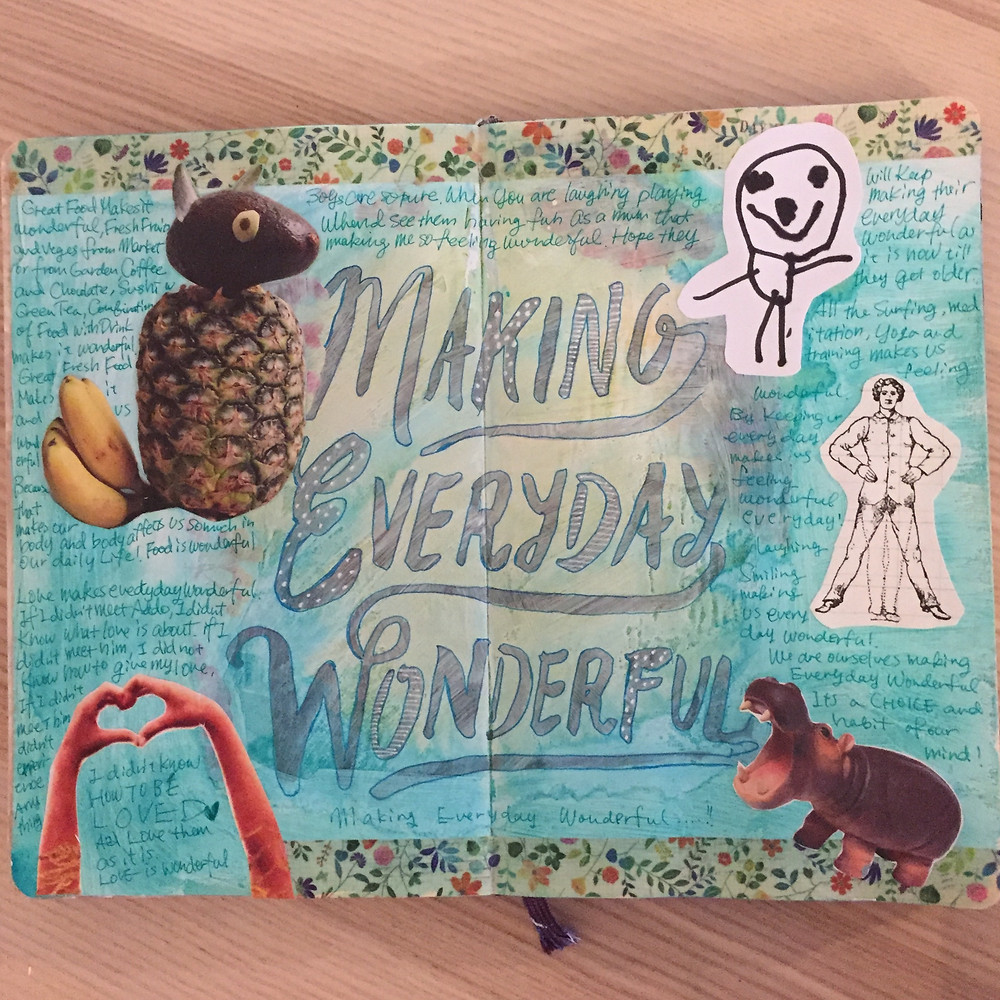 Great Food Makes it
wonderful, Fresh Fruits
and veges from Market
or from Garden Coffee
and Chocolate, Sushi
Green Tea, Combination
of Food with Drink
makes it wonderful
Fresh Food
Great
Makes it
and us
erful
Because
that
makes our
body and body affects us so much in
our daily Life! Food is wonderful
Love makes everyday wonderful
If I didn't meet Addo, I didn't
know what love is about. If I
didn't meet him, I did not
know how to give my love,
If I didn't
meet him
didn't
I didn't know
HOW TO BE
LOVED
And Love them
as it is
LOVE is wonderful
Boys are so pure. When you are laughing playing
When I see them having fun as a mum that
making me so feeling wonderful Hope they
MAKING
EVERYDAY
WONDERFUL
Making Everyday Wonderful.....!!
will keep
making their
everyday
wonderful as
it is now till
they get older
All the Surfing, med
itation, Yoga and
training makes us
feeling
wonderful
By keeping in
everyday
makes us
feeling
wonderful
everyday!
Laughing
Smiling
making
us every
day wonderful!
We are ourselves making
Everyday Wonderful
It's a CHOICE and
habit of our
mind!